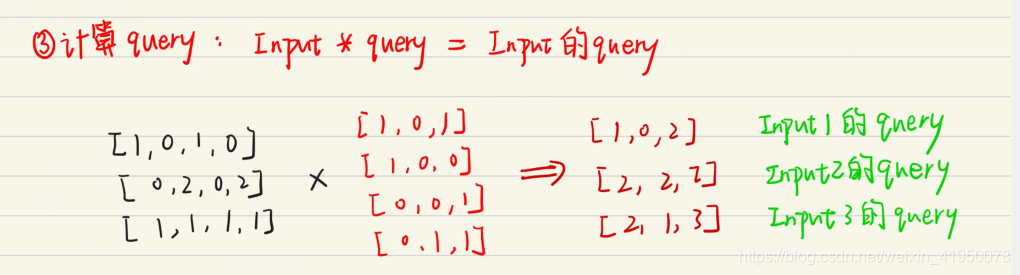 ③计算 query : Input * query = Input 的 query
[1, 0, 1, 0]
[ 0, 2, 0, 2]
[ 1, 1, 1, 1]
×
[1, 0, 1]
[ 1, 0, 0]
[ 0, 0, 1]
[ 0, 1, 1]
⇒
[1, 0, 2]
[2, 2, 2]
[2, 1, 3]
Input1 的 query
Input2的query
Input3的query
https://blog.csdn.net/weixin_41950078